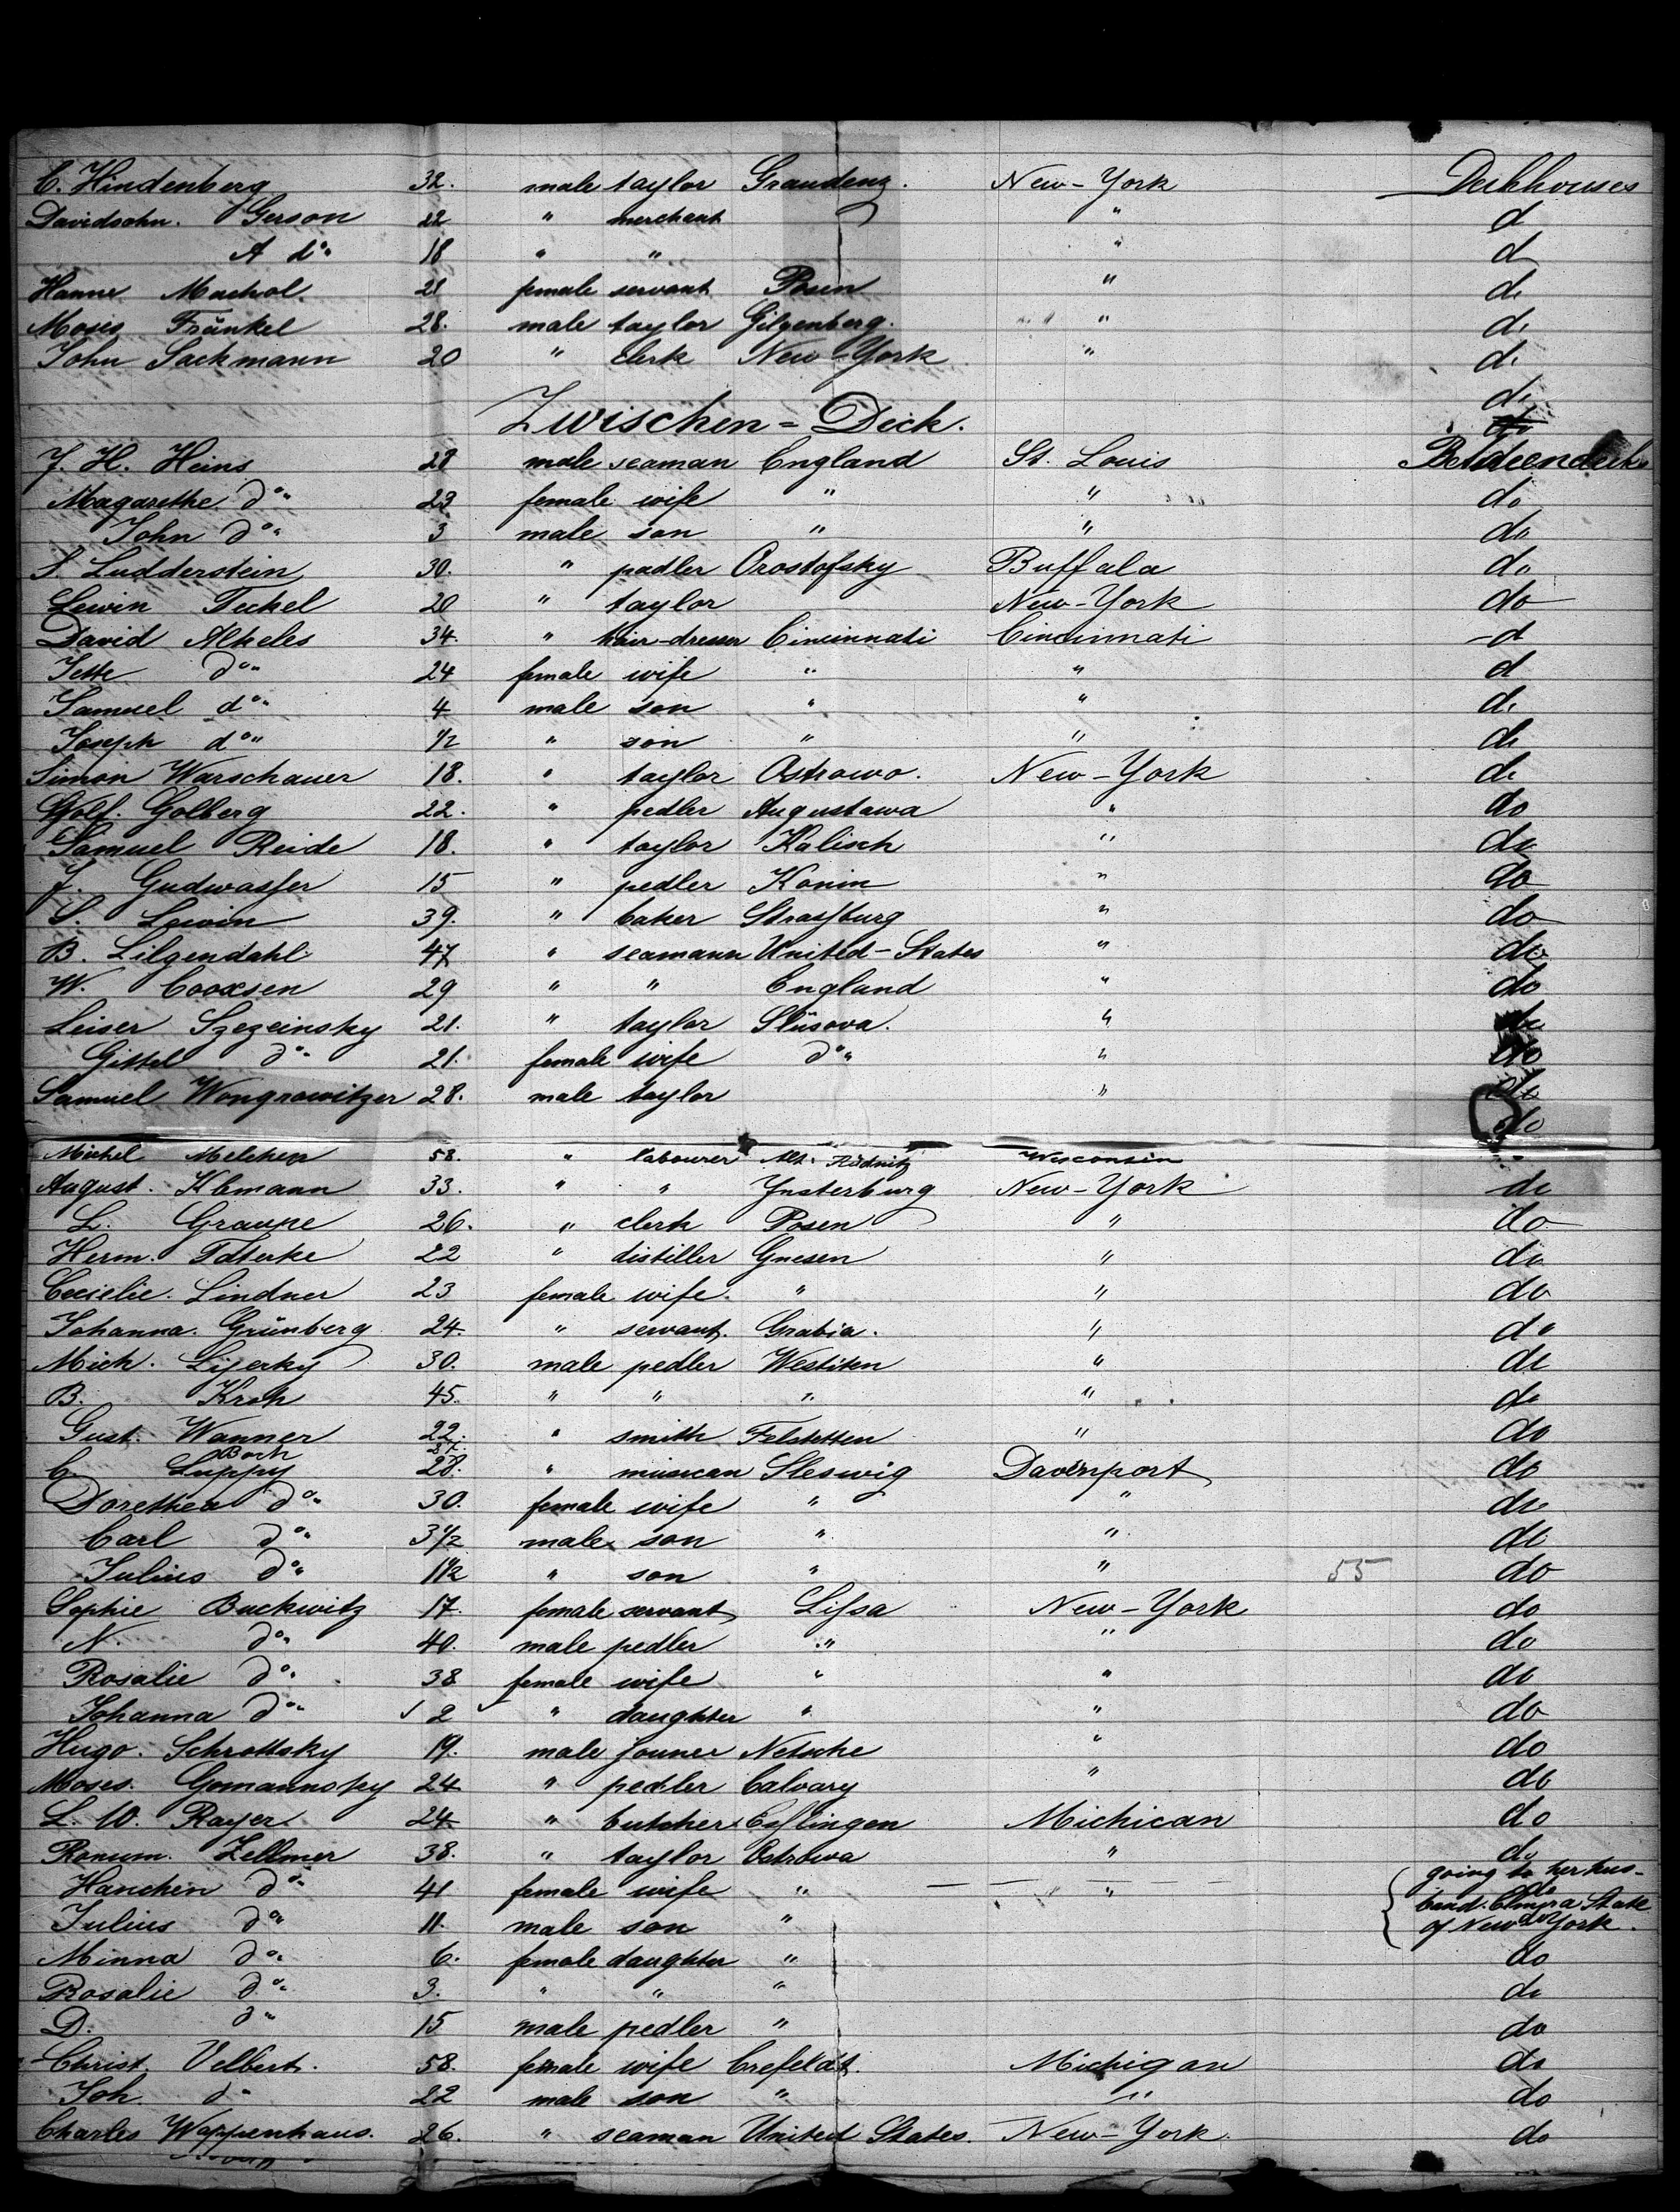 C. Hindenberg 32. male taylor Graudenz. New-York Deckhouses
Davidsohn. Gerson 22 " merchant " d
A do" 18 " " " d
Hanne Machol. 21 female servant Posen " do
Moses Fränkel 28. male taylor Gilgenberg. " do
John Sackmann 20 " clerk New-York " do
do
Zwischen=Deck.
J. H. Heins 28 male seaman England St. Louis Betweendecks
Magarethe do" 23 female wife " " do
John do" 3 male son " " do
S. Ludderstein 30. " padler Orostofsky Buffala do
Lewin Teckel 20 " taylor New-York do
David Alkeles 34. " hair-dresser Cincinnati Cincinnati d
Jette do" 24 female wife " " d
Samuel do" 4 male son " " do
Joseph do" 1/2 " son " " do
Simon Warschauer 18. " taylor Ostrowo. New-York do
Wolf. Golberg 22. " pedler Augustawa " do
Samuel Reide 18. " taylor Kalisch " do
J. Gudwasser 15 " pedler Konin " do
S. Lewin 39. " baker Strassburg " do
B. Lilgendahl 47 " seamann United-States " do
W. Cooxsen 29 " " England " do
Leiser Szezeinsky 21. " taylor Slüsova. " do
Gittel do" 21. female wife do" " do
Samuel Wongrowitzer 28. male taylor " do
do
Michel Melchen 58. " labourer Alt-Rüdnitz Wisconsin
August. Klemann 33. " " Ynsterburg New-York do
L. Graupe 26. " clerk Posen " do
Herm. 22 " distiller Gnesen " do
Cecielie. Lindner 23 female wife. " " do
Johanna. Grünberg 24. " servant. Grabia. " do
Mich. 30. male pedler Westiten " do
B. Kroh 45. " " " " do
Gust. Wanner 22. " smith Felstetten " do
Boch 27.
C. Luppy 28. " musican Sleswig Davenport do
Dorethea do" 30. female wife " " do
Carl do" 3 1/2 male son " " do
Julius do" 1 1/2 " son " " 55 do
Sophie Buckwitz 17. female servant Lissa New-York do
N. do" 40. male pedler " " do
Rosalie do" 38 female wife " " do
Johanna do" 2 " daughter " " do
Hugo. Schrottsky 19. male Netsche " do
Moses. Gomannsky 24 " pedler Calvary " do
L. W. Rayer. 24 " butcher Esslingen Michican do
Zellmer 38. " taylor Ostrowa " do
Hanchen do" 41 female wife " " going to her hus-
Julius do" 11. male son " band. Elmyra State
of New York.
Minna do" 6. female daughter " do
Rosalie do" 3. " " " do
D. do" 15 male pedler " do
Christ. Velbert. 58. female wife Crefeldt. Michigan do
Joh. do 22 male son " " do
Charles Wappenhaus. 26. " seaman United States. New-York. do